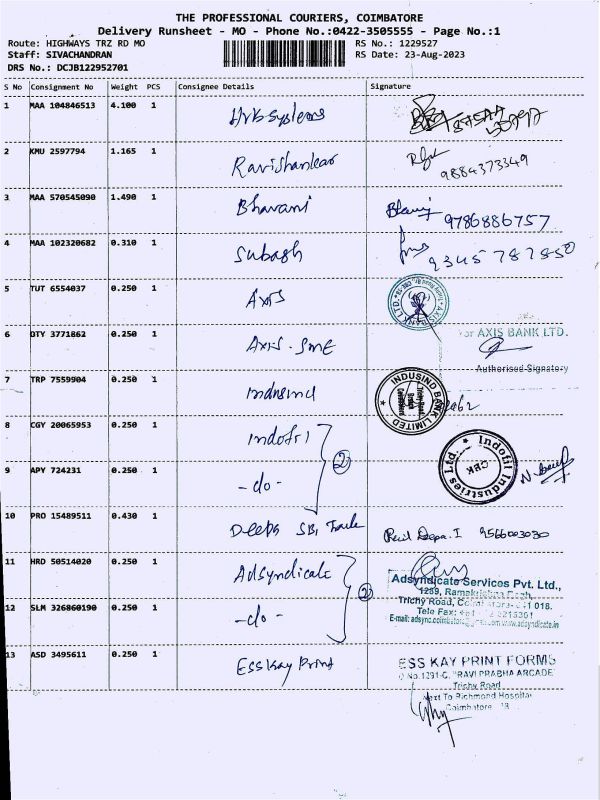 THE PROFESSIONAL COURIERS, COIMBATORE
Delivery Runsheet - MO - Phone No.:0422-3505555 - Page No.:1
Route: HIGHWAYS TRZ RD MO RS No.: 1229527
Staff: SIVACHANDRAN RS Date: 23-Aug-2023
DRS No.: DCJB122952701
S No Consignment No Weight PCS Consignee Details Signature
1 MAA 104846513 4.100 1 Hrb systems
2 KMU 2597794 1.165 1 Ravishankar 9884373349
3 MAA 570545090 1.490 1 Bharani 9786886757
4 MAA 102320682 0.310 1 Subash 9345787850
5 TUT 6554037 0.250 1 Axis AXIS BANK LTD.
6 DTY 3771862 0.250 1 Axis - SME For AXIS BANK LTD.
Authorised Signatory
7 TRP 7559904 0.250 1 Indusind INDUSIND BANK LIMITED
8 CGY 20065953 0.250 1 Indofil
Indofil Industries Ltd. CBK
9 APY 724231 0.250 1 -do- 2
10 PRO 15489511 0.430 1 Deepa SBI 9566003030
11 HRD 50514020 0.250 1 Adsyndicate
Adsyndicate Services Pvt. Ltd.,
1289, Ramakrishna
Trichy Road, 018.
12 SLM 326860190 0.250 1 -do- 2
Tele Fax:
E-mail:
13 ASD 3495611 0.250 1 Ess Kay Print
ESS KAY PRINT FORMS
No.1291-C, "RAVI PRABHA ARCADE"
Trichy Road
Next To Richmond Hospital
Coimbatore - 18